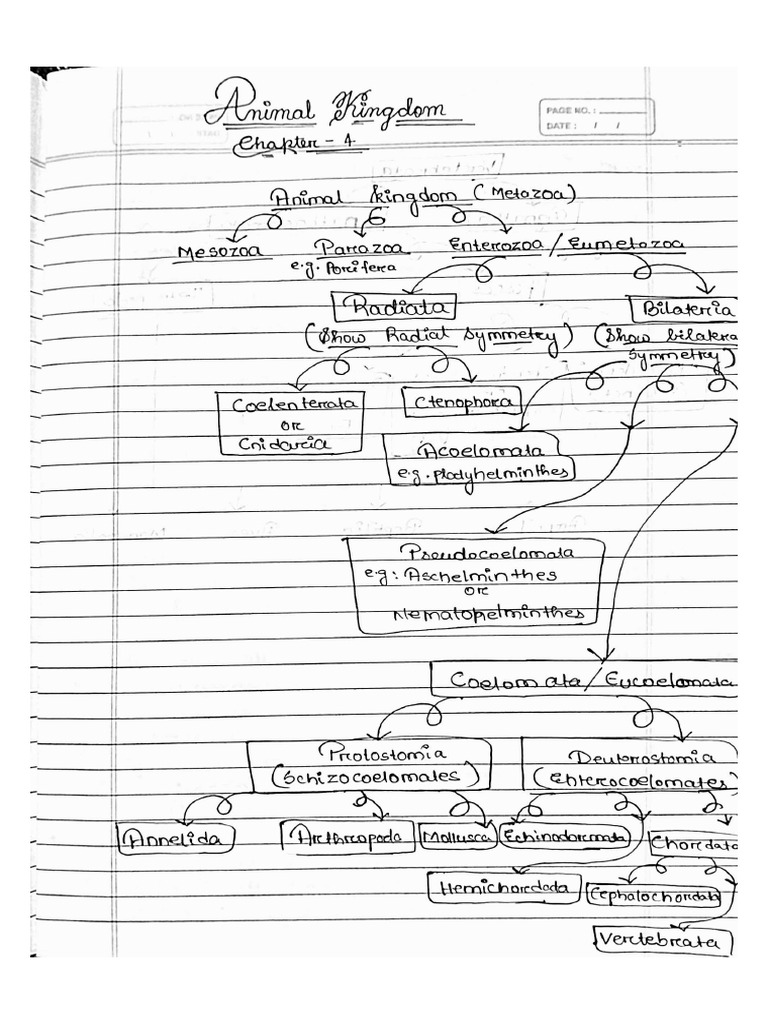 Animal Kingdom
PAGE NO. :
DATE : / /
Chapter - 4
Animal kingdom (Metazoa)
Mesozoa Parazoa Enterozoa / Eumetazoa
e.g. Porifera
Radiata Bilateria
(Show Radial Symmetry) (Show bilatera
Symmetry)
Coelenterata Ctenophora
or
Cnidaria
Acoelomata
e.g. Platyhelminthes
Pseudocoelomata
e.g: Aschelminthes
or
Nematohelminthes
Coelomata / Eucoelomata
Protostomia Deuterostomia
(Schizocoelomates) (Enterocoelomates)
Annelida Arthropoda Mollusca Echinodormata Chordata
Hemichordada Cephalochordata
Vertebrata